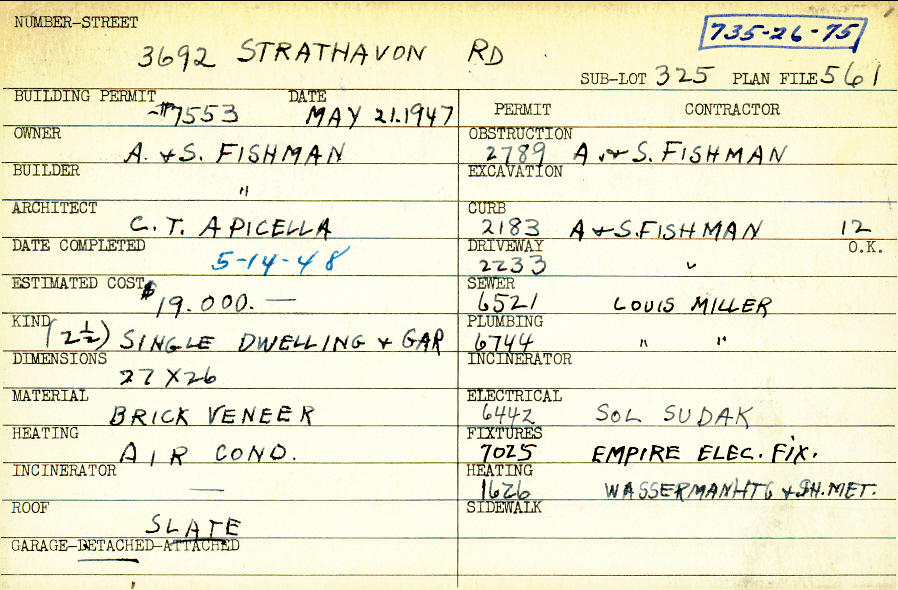 NUMBER-STREET
3692 STRATHAVON RD
735-26-75
SUB-LOT 325 PLAN FILE 561
BUILDING PERMIT DATE
#7553 MAY 21.1947
OWNER
A. & S. FISHMAN
BUILDER
"
ARCHITECT
C. T. APICELLA
DATE COMPLETED
5-14-48
ESTIMATED COST
$19.000. —
KIND
(2 1/2) SINGLE DWELLING & GAR
DIMENSIONS
27 X 26
MATERIAL
BRICK VENEER
HEATING
AIR COND.
INCINERATOR
—
ROOF
SLATE
GARAGE-DETACHED-ATTACHED
PERMIT CONTRACTOR
OBSTRUCTION
2789 A. & S. FISHMAN
EXCAVATION
CURB
2183 A & S. FISHMAN 12
DRIVEWAY O.K.
2233 "
SEWER
6521 LOUIS MILLER
PLUMBING
6744 " "
INCINERATOR
ELECTRICAL
6442 SOL SUDAK
FIXTURES
7025 EMPIRE ELEC. FIX.
HEATING
1626 WASSERMAN HTG & SH. MET.
SIDEWALK